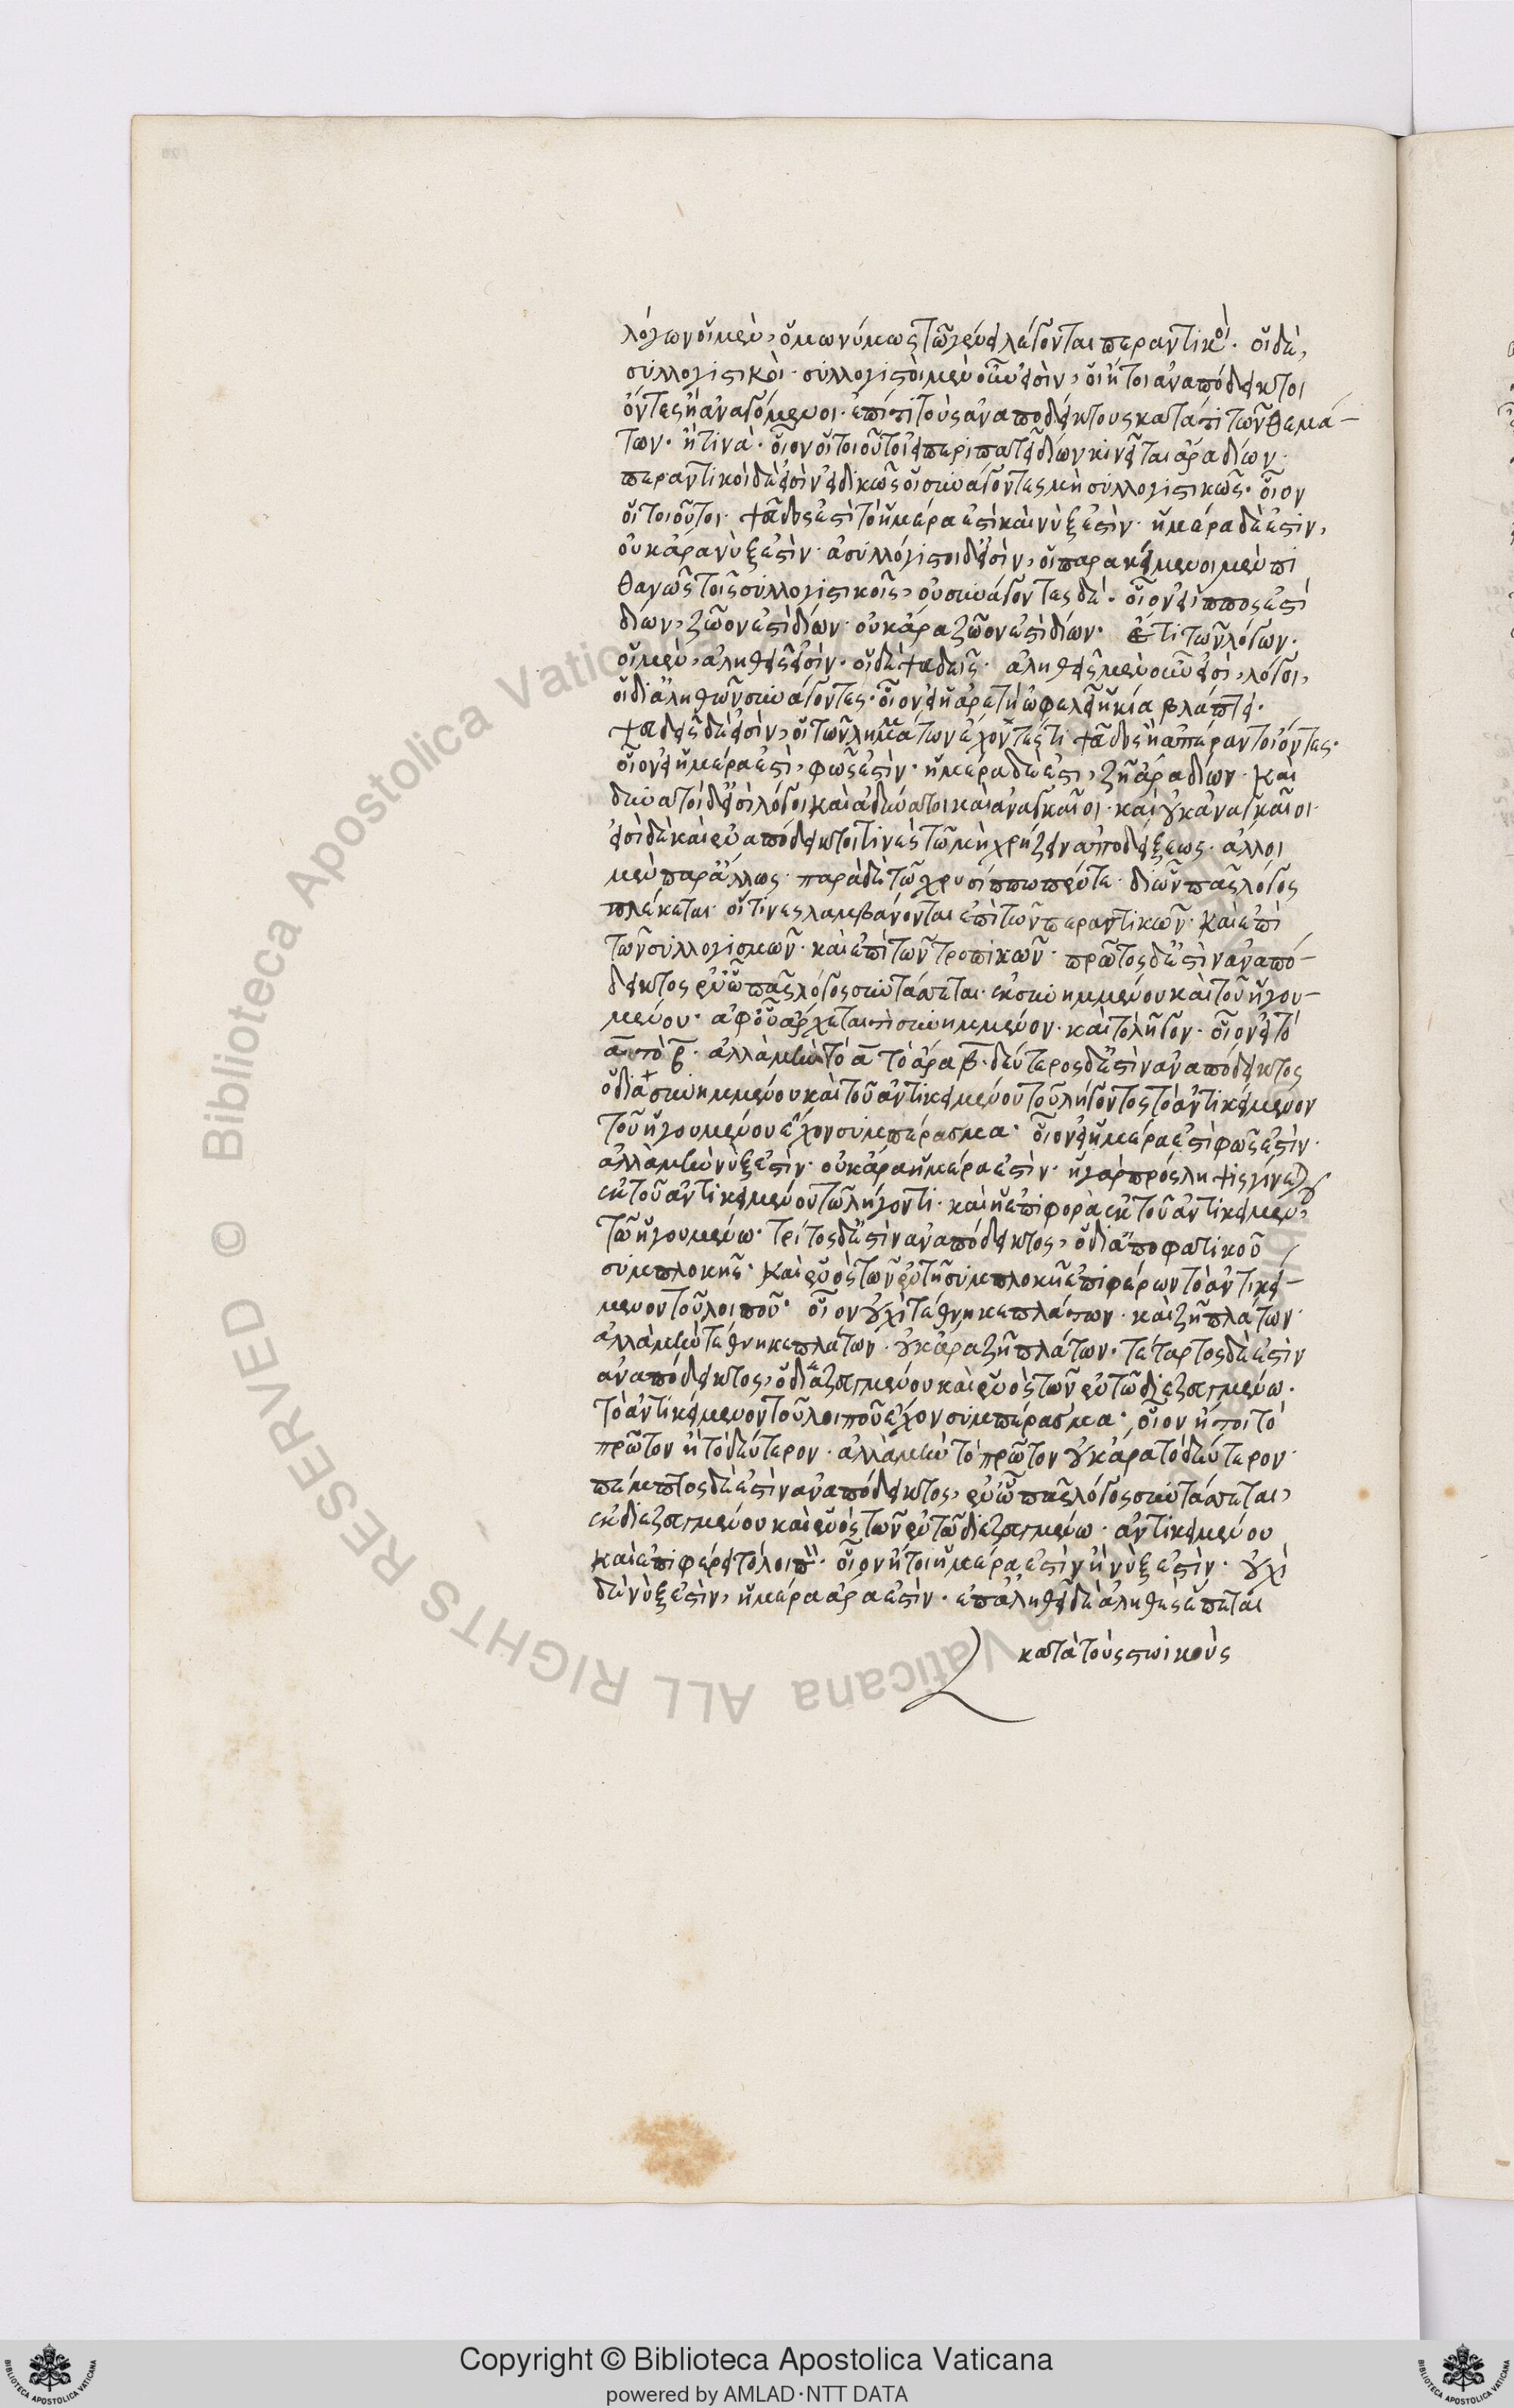 λόγων οἱ μὲν, ὁμωνύμως τῶ γένει λέγονται περαντικοὶ. οἱ δὲ,
συλλογιστικοὶ. συλλογιστοὶ μὲν οὖν εἰσὶν, οἱ ἤτοι ἀναπόδεικτοι
ὄντες ἢ ἀναγόμενοι. ἐπί τι τοὺς ἀναποδείκτους κατά τι τῶν θεμά-
των. ἤ τινα. οἷον οἱ τοιοῦτοι εἰ περιπατεῖ δίων κινεῖται ἄρα δίων.
περαντικοὶ δέ εἰσιν εἰδικῶς οἱ συνάγοντες μὴ συλλογιστικῶς. οἷον
οἱ τοιοῦτοι. ψεῦδος ἐστὶ τὸ ἡμέρα ἐστὶ καὶ νὺξ ἐστὶν. ἡμέρα δὲ ἐστιν,
οὐκ ἄρα νὺξ ἐστὶν. ἀσυλλόγιστοι δ' εἰσὶν, οἱ παρακείμενοι μὲν πι
θανῶς τοῖς συλλογιστικοῖς, οὐ συνάγοντες δέ. οἷον εἰ ἵππος ἐστὶ
δίων, ζῶον ἐστὶ δίων. οὐκ ἄρα ζῶον ἐστὶ δίων. ἔτι τῶν λόγων.
οἱ μὲν, ἀληθεῖς εἰσὶν. οἱ δὲ ψευδεῖς. ἀληθεῖς μὲν οὖν εἰσὶ, λόγοι,
οἱ δι' ἀληθῶν συνάγοντες. οἷον εἰ ἡ ἀρετὴ ὠφελεῖ ἡ κία βλάπτει.
ψευδεῖς δὲ εἰσὶν, οἱ τῶν λημμάτων ἔχοντές τι ψεῦδος ἢ ἀπέραντοι ὄντες.
οἷον εἰ ἡμέρα ἐστὶ, φῶς ἐστὶν. ἡμέρα δὲ ἐστι, ζῆ ἄρα δίων. καὶ
δυνατοί δ' εἰσὶ λόγοι καὶ ἀδύνατοι καὶ ἀναγκαῖοι. καὶ οὐκ ἀναγκαῖοι.
εἰσὶ δὲ καὶ ἐν ἀπόδεικτοι τινὲς τῶ μὴ χρήζειν ἀποδείξεως. ἄλλοι
μὲν παρ' ἄλλως. παρὰ δὲ τῶ χρυσίππω πέντε. δι' ὧν πᾶς λόγος
πλέκεται. οἵτινες λαμβάνονται ἐπὶ τῶν περαντικῶν. καὶ ἐπὶ
τῶν συλλογισμῶν. καὶ ἐπὶ τῶν τροπικῶν. πρῶτος δέ ἐστὶν ἀναπό-
δεικτος ἐν ᾧ πᾶς λόγος συντάσσεται. ἐκ συνημμένου καὶ τοῦ ἡγου-
μένου. ἀφ' οὗ ἄρχεται τὸ συνημμένον. καὶ τὸ λῆγον. οἷον εἰ τό
ᾱ τὸ β̄. ἀλλὰ μὴν τό ᾱ τὸ ἄρα β̄. δεύτερος δ' ἐστὶν ἀναπόδεικτος
ὁ διὰ συνημμένου καὶ τοῦ ἀντικειμένου τοῦ λήγοντος τὸ ἀντικείμενον
τοῦ ἡγουμένου ἔχον συμπέρασμα. οἷον εἰ ἡμέρα ἐστὶ φῶς ἐστὶν.
ἀλλὰ μὴν νὺξ ἐστὶν. οὐκ ἄρα ἡμέρα ἐστὶν. ἡ γὰρ πρόσληψις γίνεται
ἐκ τοῦ ἀντικειμένου τῶ λήγοντι. καὶ ἡ ἐπιφορὰ ἐκ τοῦ ἀντικειμένου
τῶ ἡγουμένω. τρίτος δ' ἐστὶν ἀναπόδεικτος, ὁ δι' ἀποφατικοῦ
συμπλοκῆς. καὶ ἑνὸς τῶν ἐν τῆ συμπλοκῆ ἐπιφέρων τὸ ἀντικεί-
μενον τοῦ λοιποῦ. οἷον οὐχὶ τέθνηκε πλάτων. καὶ ζῆ πλάτων.
ἀλλὰ μὴν τέθνηκε πλάτων. οὐκ ἄρα ζῆ πλάτων. τέταρτος δὲ ἐστὶν
ἀναπόδεικτος, ὁ διεζευγμένου καὶ ἑνὸς τῶν ἐν τῶ διεζευγμένω.
τὸ ἀντικείμενον τοῦ λοιποῦ ἔχον συμπέρασμα. οἷον ἤτοι τὸ
πρῶτον ἢ τὸ δεύτερον. ἀλλὰ μὴν τὸ πρῶτον οὐκ ἄρα τὸ δεύτερον.
πέμπτος δὲ ἐστὶν ἀναπόδεικτος, ἐν ᾧ πᾶς λόγος συντάσσεται,
ἐκ διεζευγμένου καὶ ἑνὸς τῶν ἐν τῶ διεζευγμένω. ἀντικειμένου
καὶ ἐπιφέρει τὸ λοιπὸν. οἷον ἤτοι ἡμέρα ἐστὶν ἢ νὺξ ἐστὶν. οὐχὶ
δὲ νὺξ ἐστὶν, ἡμέρα ἄρα ἐστὶν. ἐπ' ἀληθεῖ δὲ ἀληθὲς ἕπεται
κατὰ τοὺς στωικοὺς
© Biblioteca Apostolica Vaticana ALL RIGHTS RESERVED
Copyright © Biblioteca Apostolica Vaticana
powered by AMLAD·NTT DATA